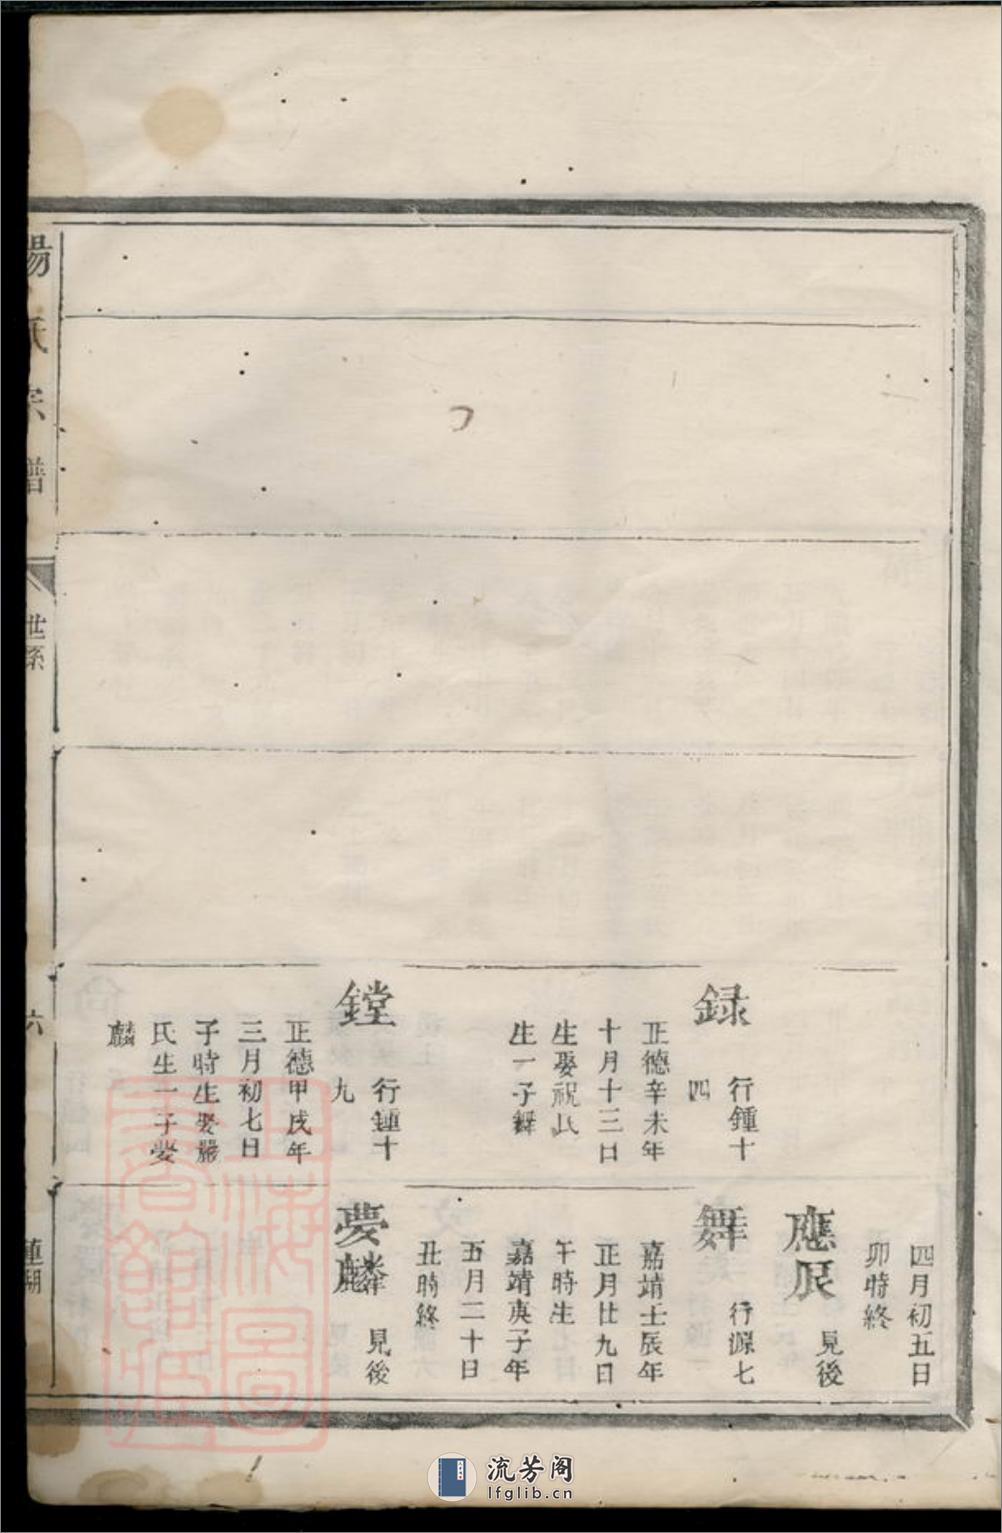 録
行鍾十
四
正德辛未年
十月十三日
生娶祝氏
生一子舞
鏜
行鍾十
九
正德甲戌年
三月初七日
子時生娶嚴
氏生一子夢
麟
四月初五日
卯時終
應辰
見後
舞
行源七
嘉靖壬辰年
正月廿九日
午時生
嘉靖庚子年
五月二十日
丑時終
夢麟
見後
氏宗譜
世系
六
蓮湖
上海圖
書館藏
流芳阁
lfglib.cn